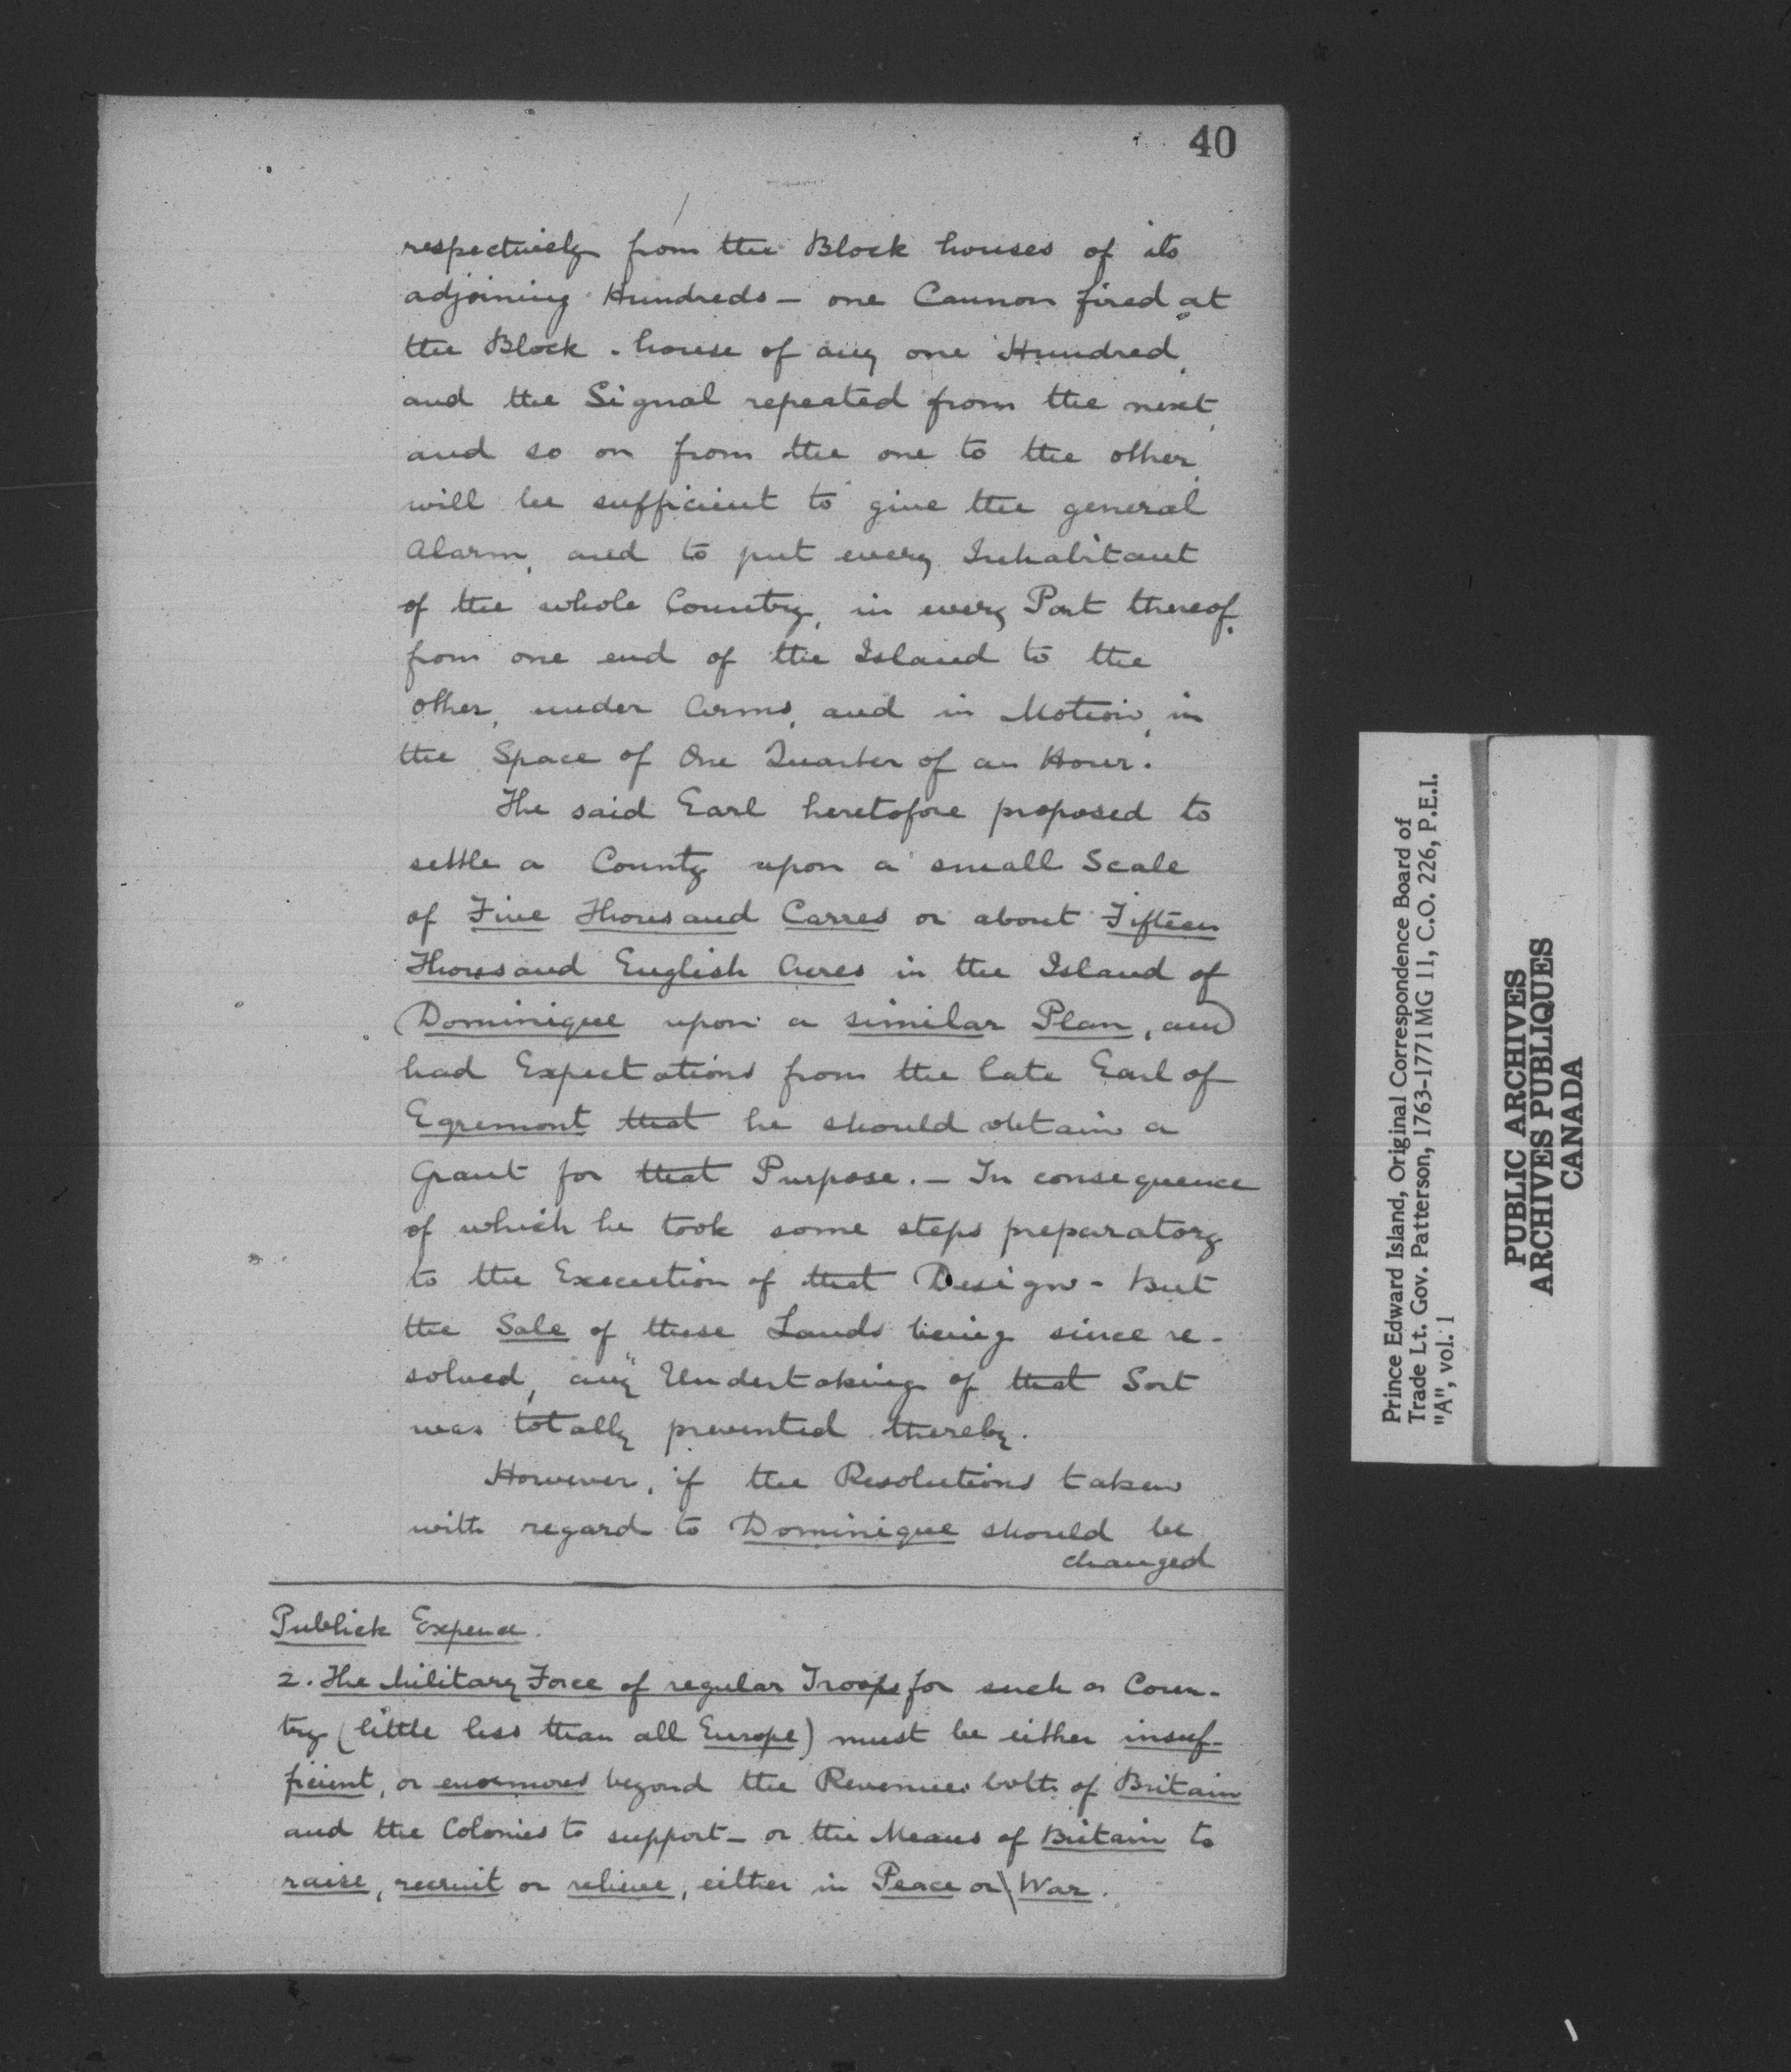 40
respectively from the Block houses of its
adjoining Hundreds — one Cannon fired at
the Block-house of any one Hundred,
and the Signal repeated from the next,
and so on from the one to the other,
will be sufficient to give the general
Alarm, and to put every Inhabitant
of the whole Country, in every Part thereof,
from one end of the Island to the
other, under Arms, and in Motion, in
the Space of One Quarter of an Hour.
The said Earl heretofore proposed to
settle a County upon a small Scale
of Five Thousand Carres or about Fifteen
Thousand English Acres in the Island of
Dominique upon a similar Plan, and
had Expectations from the late Earl of
Egremont that he should obtain a
Grant for that Purpose. — In consequence
of which he took some steps preparatory
to the Execution of that Design - But
the Sale of these Lands being since re-
solved, any Undertaking of that Sort
was totally prevented thereby.
However, if the Resolutions taken
with regard to Dominique should be
changed
Publick Expence.
2. The Military Force of regular Troops for such a Coun-
try (little less than all Europe) must be either insuf-
ficient, or enormous beyond the Revenues both of Britain
and the Colonies to support — or the Means of Britain to
raise, recruit or relieve, either in Peace or War.
Prince Edward Island, Original Correspondence Board of
Trade Lt. Gov. Patterson, 1763-1771 MG 11, C.O. 226, P.E.I.
"A", vol. 1
PUBLIC ARCHIVES
ARCHIVES PUBLIQUES
CANADA